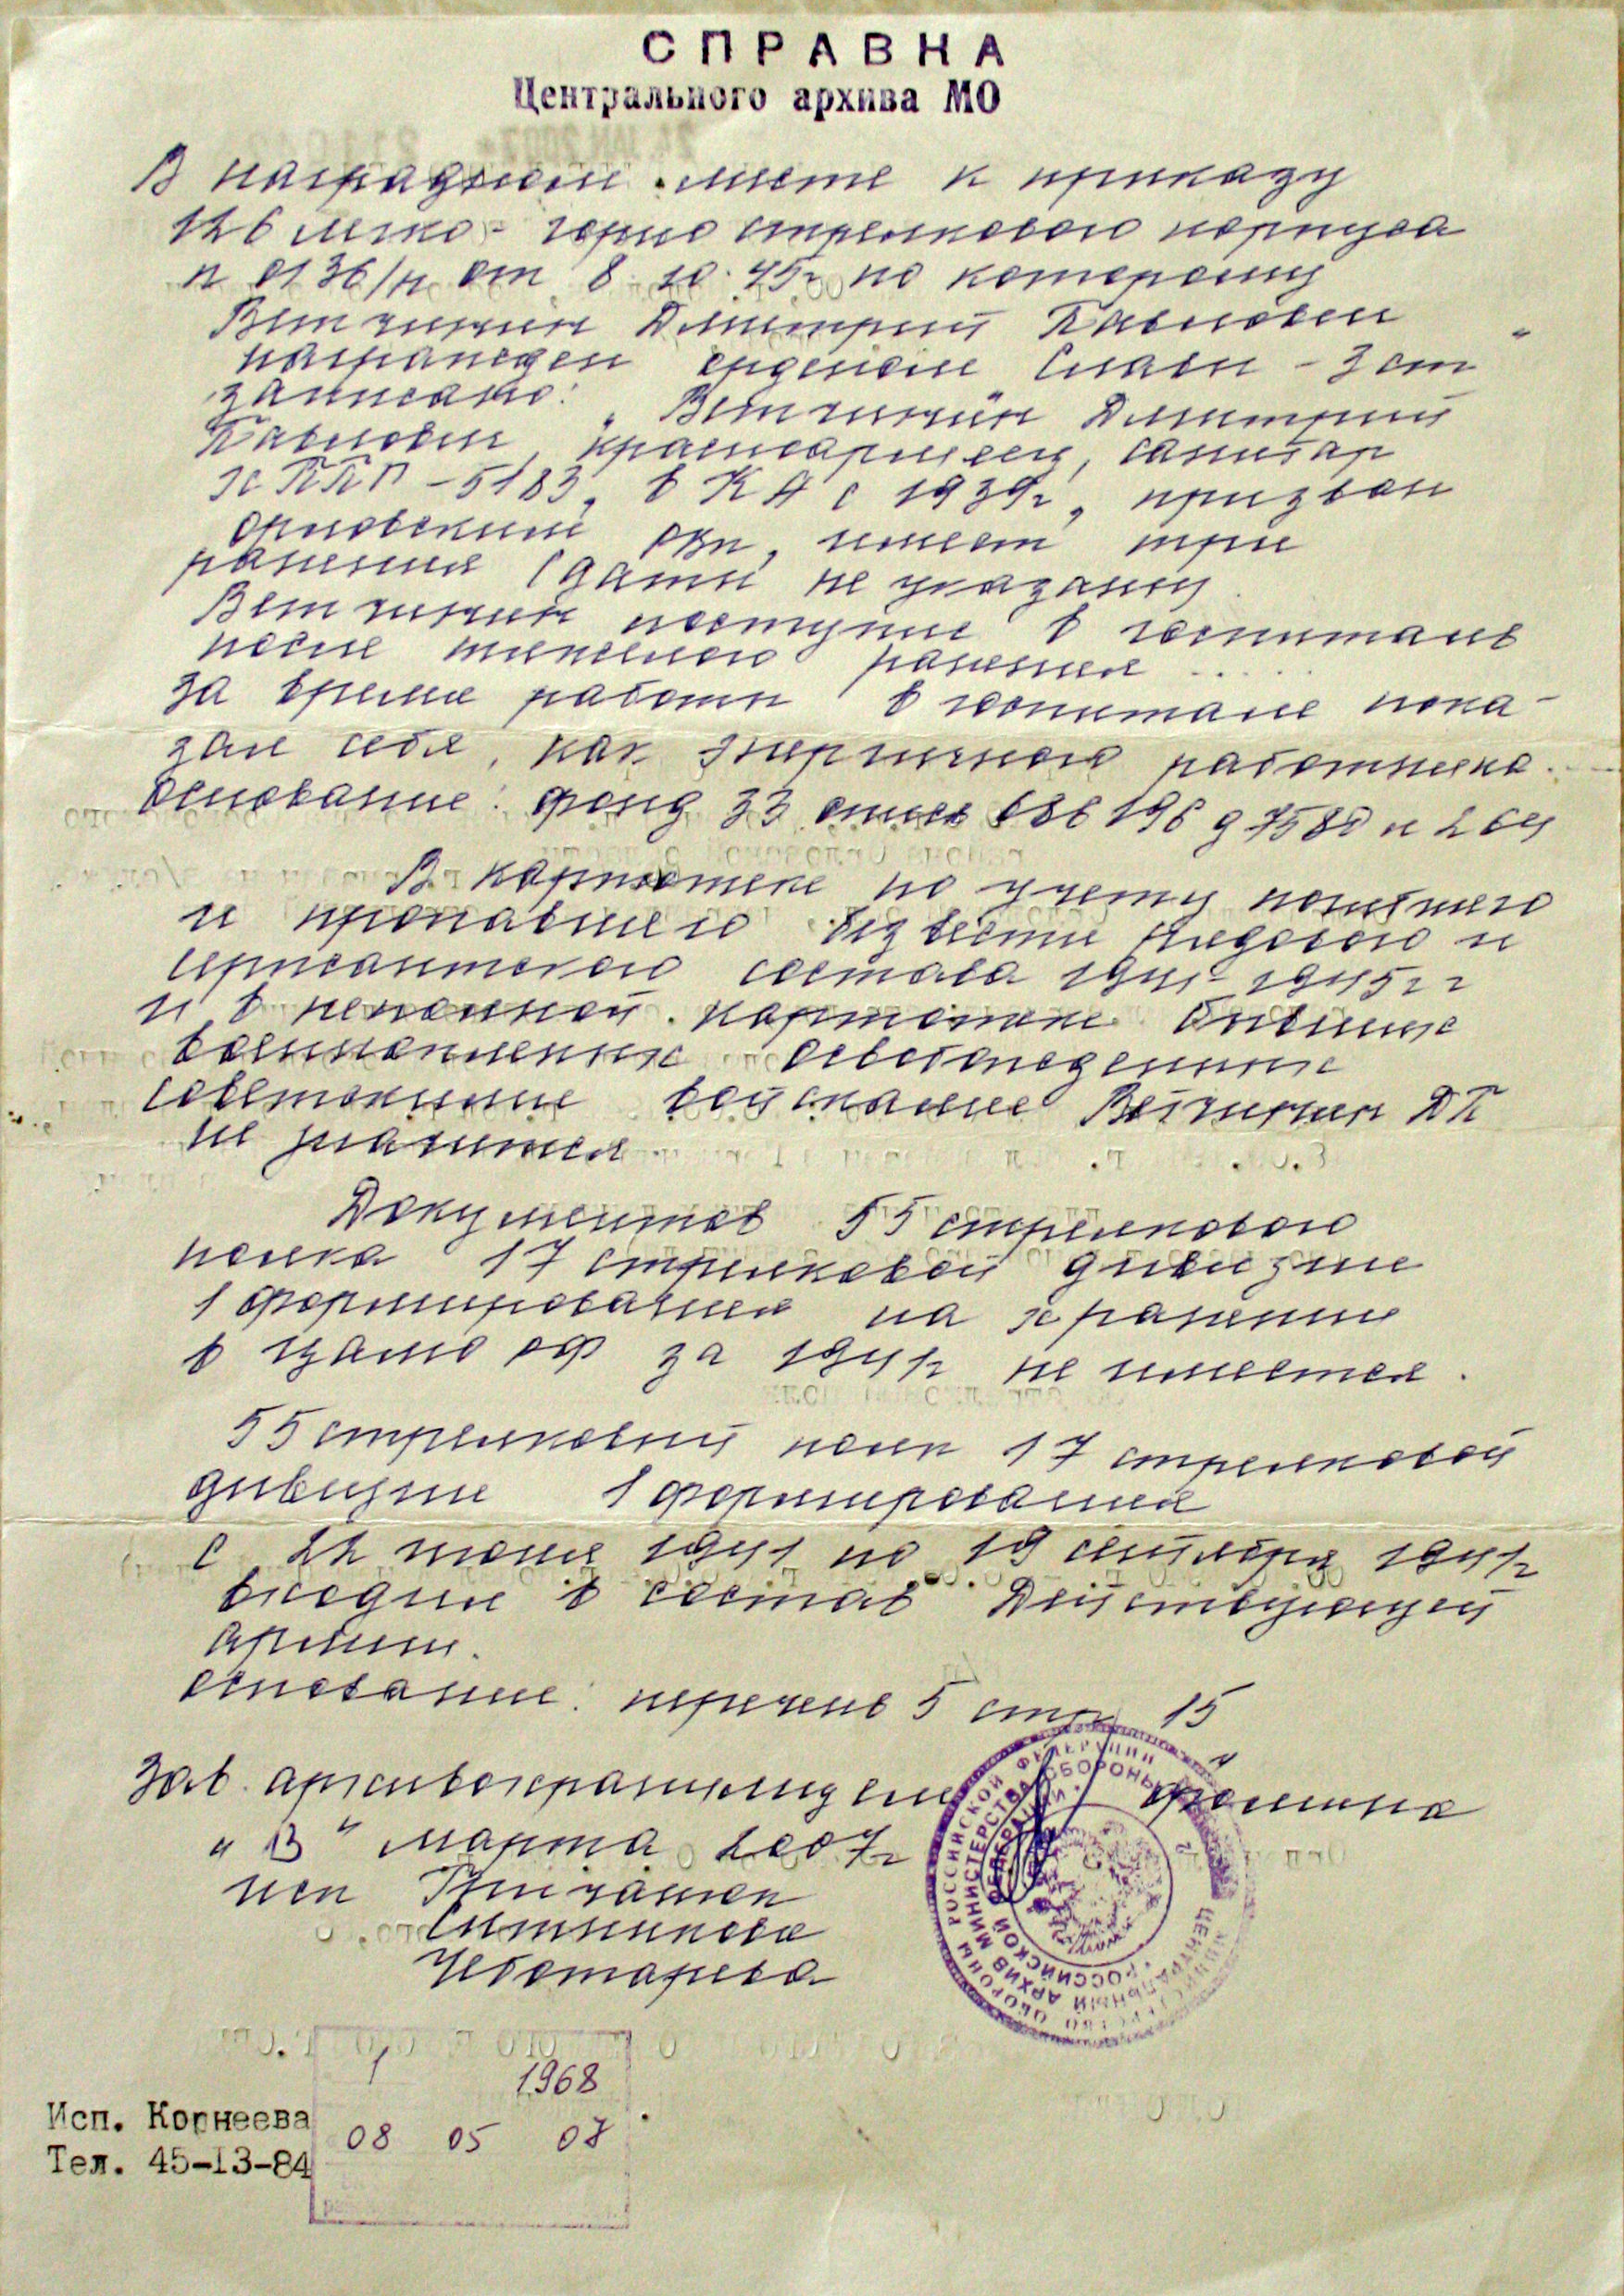 СПРАВКА
Центрального архива МО
В наградном листе к приказу
126 легко-горно стрелкового корпуса
№ 0136/н от 8.10.45г по которому
Ветчинин Дмитрий Павлович
награжден орденом Славы - 3 ст
записано: „Ветчинин Дмитрий
Павлович, красноармеец, санитар
ХППГ-5183, в КА с 1939г, призван
Орловский РВК, имеет три
ранения (даты не указаны)
Ветчинин поступил в госпиталь
после тяжелого ранения .....
За время работы в госпитале пока-
зал себя, как энергичного работника.
Основание: фонд 33 опись 686196 д 7580 л 264
В картотеке по учету погибшего
и пропавшего без вести рядового и
сержантского состава 1941-1945гг
и в неполной картотеке бывших
военнопленных освобожденных
советскими войсками Ветчинин ДП
не значится
Документов 55 стрелкового
полка 17 стрелковой дивизии
1 формирования на хранении
в ЦАМО РФ за 1941г не имеется.
55 стрелковый полк 17 стрелковой
дивизии 1 формирования
с 22 июня 1941 по 19 сентября 1941г
входил в состав Действующей
армии.
Основание: перечень 5 стр 15
Зав. архивохранилищем Фомина
„13" марта 2007г
исп
Ситникова
Чеботарева
1 1968
08 05 07
Исп. Корнеева
Тел. 45-13-84